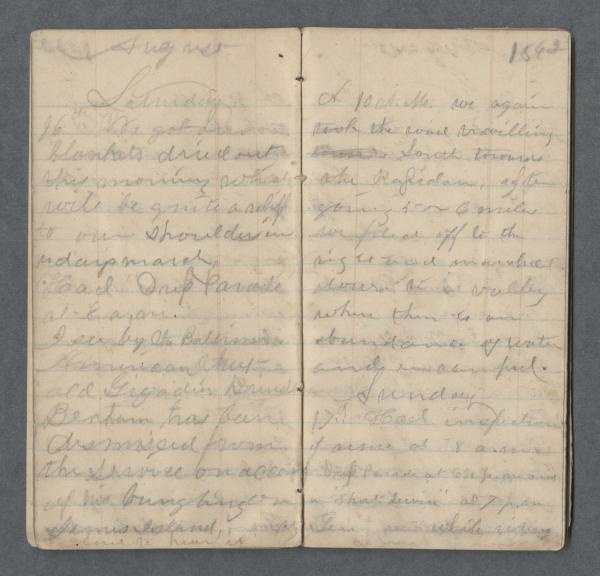 August
Saturday
16th We got our
blankets dried out
this morning which
will be quite a relief
to our shoulders in
a days march
Had Dress Parade
at 8 a.m.
I see by the Baltimore
American that
old Brigadier
Benham has been
dismissed from
the service on account
of his bungling on
James Island,
to hear it
1862
A 10 A.M. we again
took the road travelling
towards South towards
the Rapidan, after
going 5 or 6 miles
we filed off to the
right and marched
down in a valley
when there is an
abundance of water
and encamped.
Sunday
17th Had inspection
of arms at 8 a.m.
Dress Parade at 6½ p.m. and
a short at 7 p.m.
Gen while riding